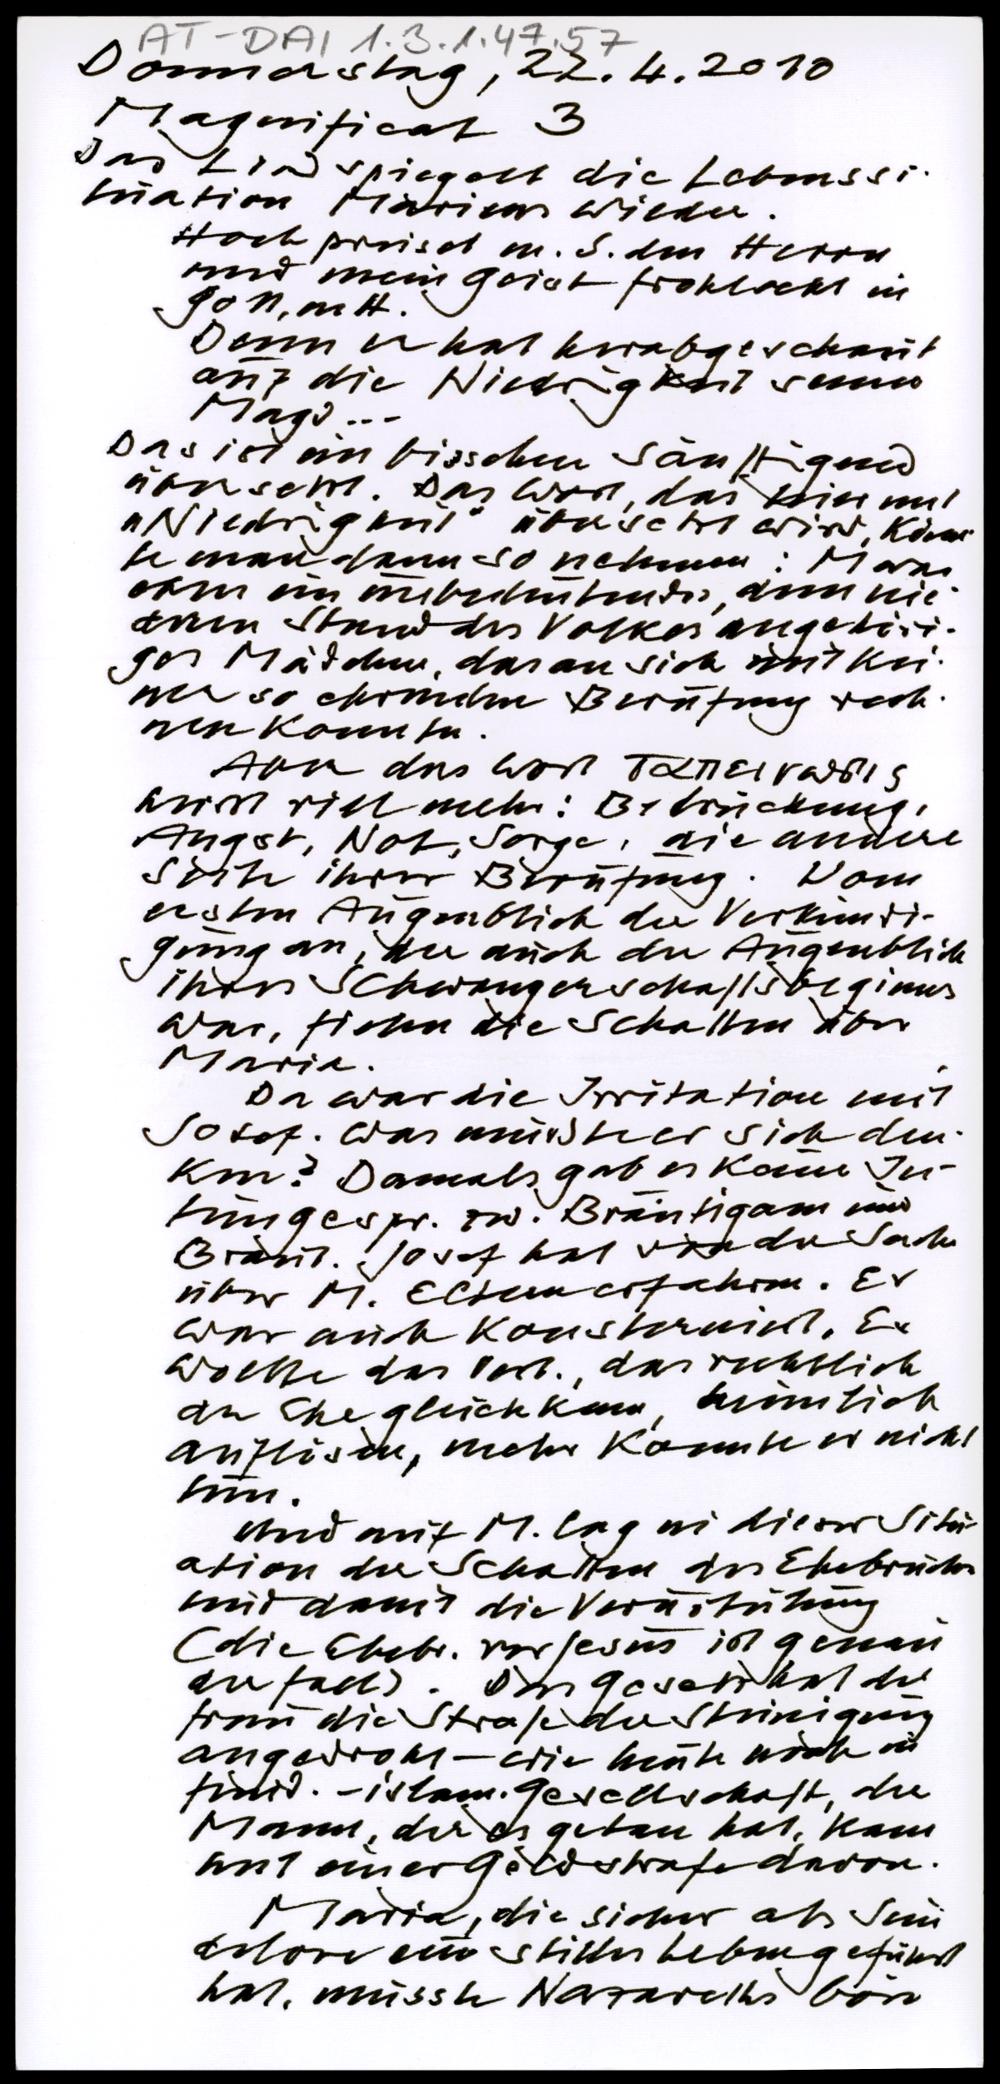 AT-DAI 1.3.1.47.57
Donnerstag, 22.4.2010
Magnificat 3
Das Lied spiegelt die Lebenssi-
tuation Mariens wieder.
Hoch preiset m. S. den Herrn
und mein Geist frohlockt in
Gott, m. H.
Denn er hat herabgeschaut
auf die Niedrigkeit seiner
Magd ...
Das ist ein bisschen sänftigend
übersetzt. Das Wort, das hier mit
"Niedrigkeit" übersetzt wird, könn-
te man dann so nehmen: Maria
eben ein unbedeutendes, dem nie-
deren Stand des Volkes angehöri-
ges Mädchen, das an sich mit kei-
ner so ehrenden Berufung rech-
nen konnte.
Aber das Wort ταπεινωσις
heisst viel mehr: Bedrückung,
Angst, Not, Sorge, die andere
Seite ihrer Berufung. Vom
ersten Augenblick der Verkündi-
gung an, der auch der Augenblick
ihres Schwangerschaftsbeginnes
war, fielen die Schatten über
Maria.
Da war die Irritation mit
Josef. Was musste er sich den-
ken? Damals gab es keine In-
timgespr. zw. Bräutigam und
Braut. Josef hat von der Sache
über M. Eltern erfahren. Er
war auch konsterniert. Er
wollte das Verl., das rechtlich
der Ehe gleichkam, heimlich
auflösen, mehr konnte er nicht
tun.
Und auf M. lag in dieser Situ-
ation der Schatten des Ehebruches
und damit die Verurteilung
(die Ehebr. vor Jesus ist genau
der Fall). Das Gesetz hat der
Frau die Strafe der Steinigung
angedroht – wie heute noch in
fund. - islam. Gesellschaft, der
Mann, der es getan hat, kam
mit einer Geldstrafe davon.
Maria, die sicher als
ein stilles Leben geführt
hat, musste Nazareths